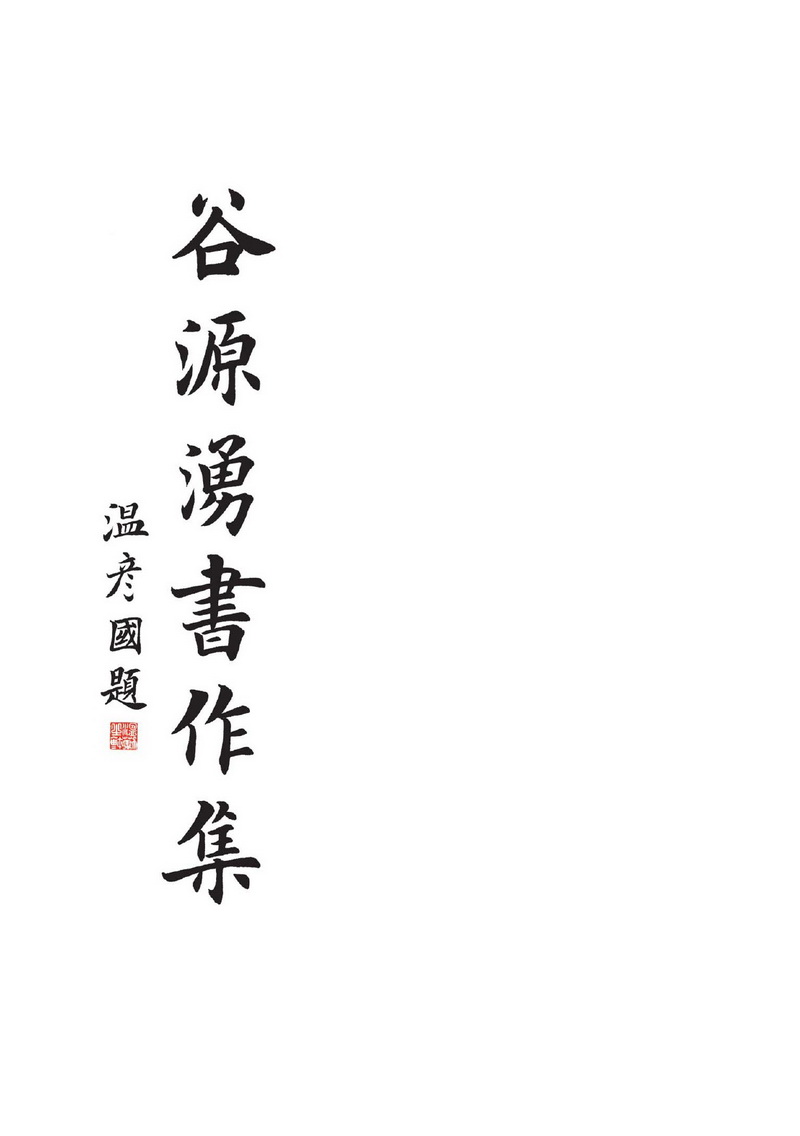 谷源湧書作集
温彦國題